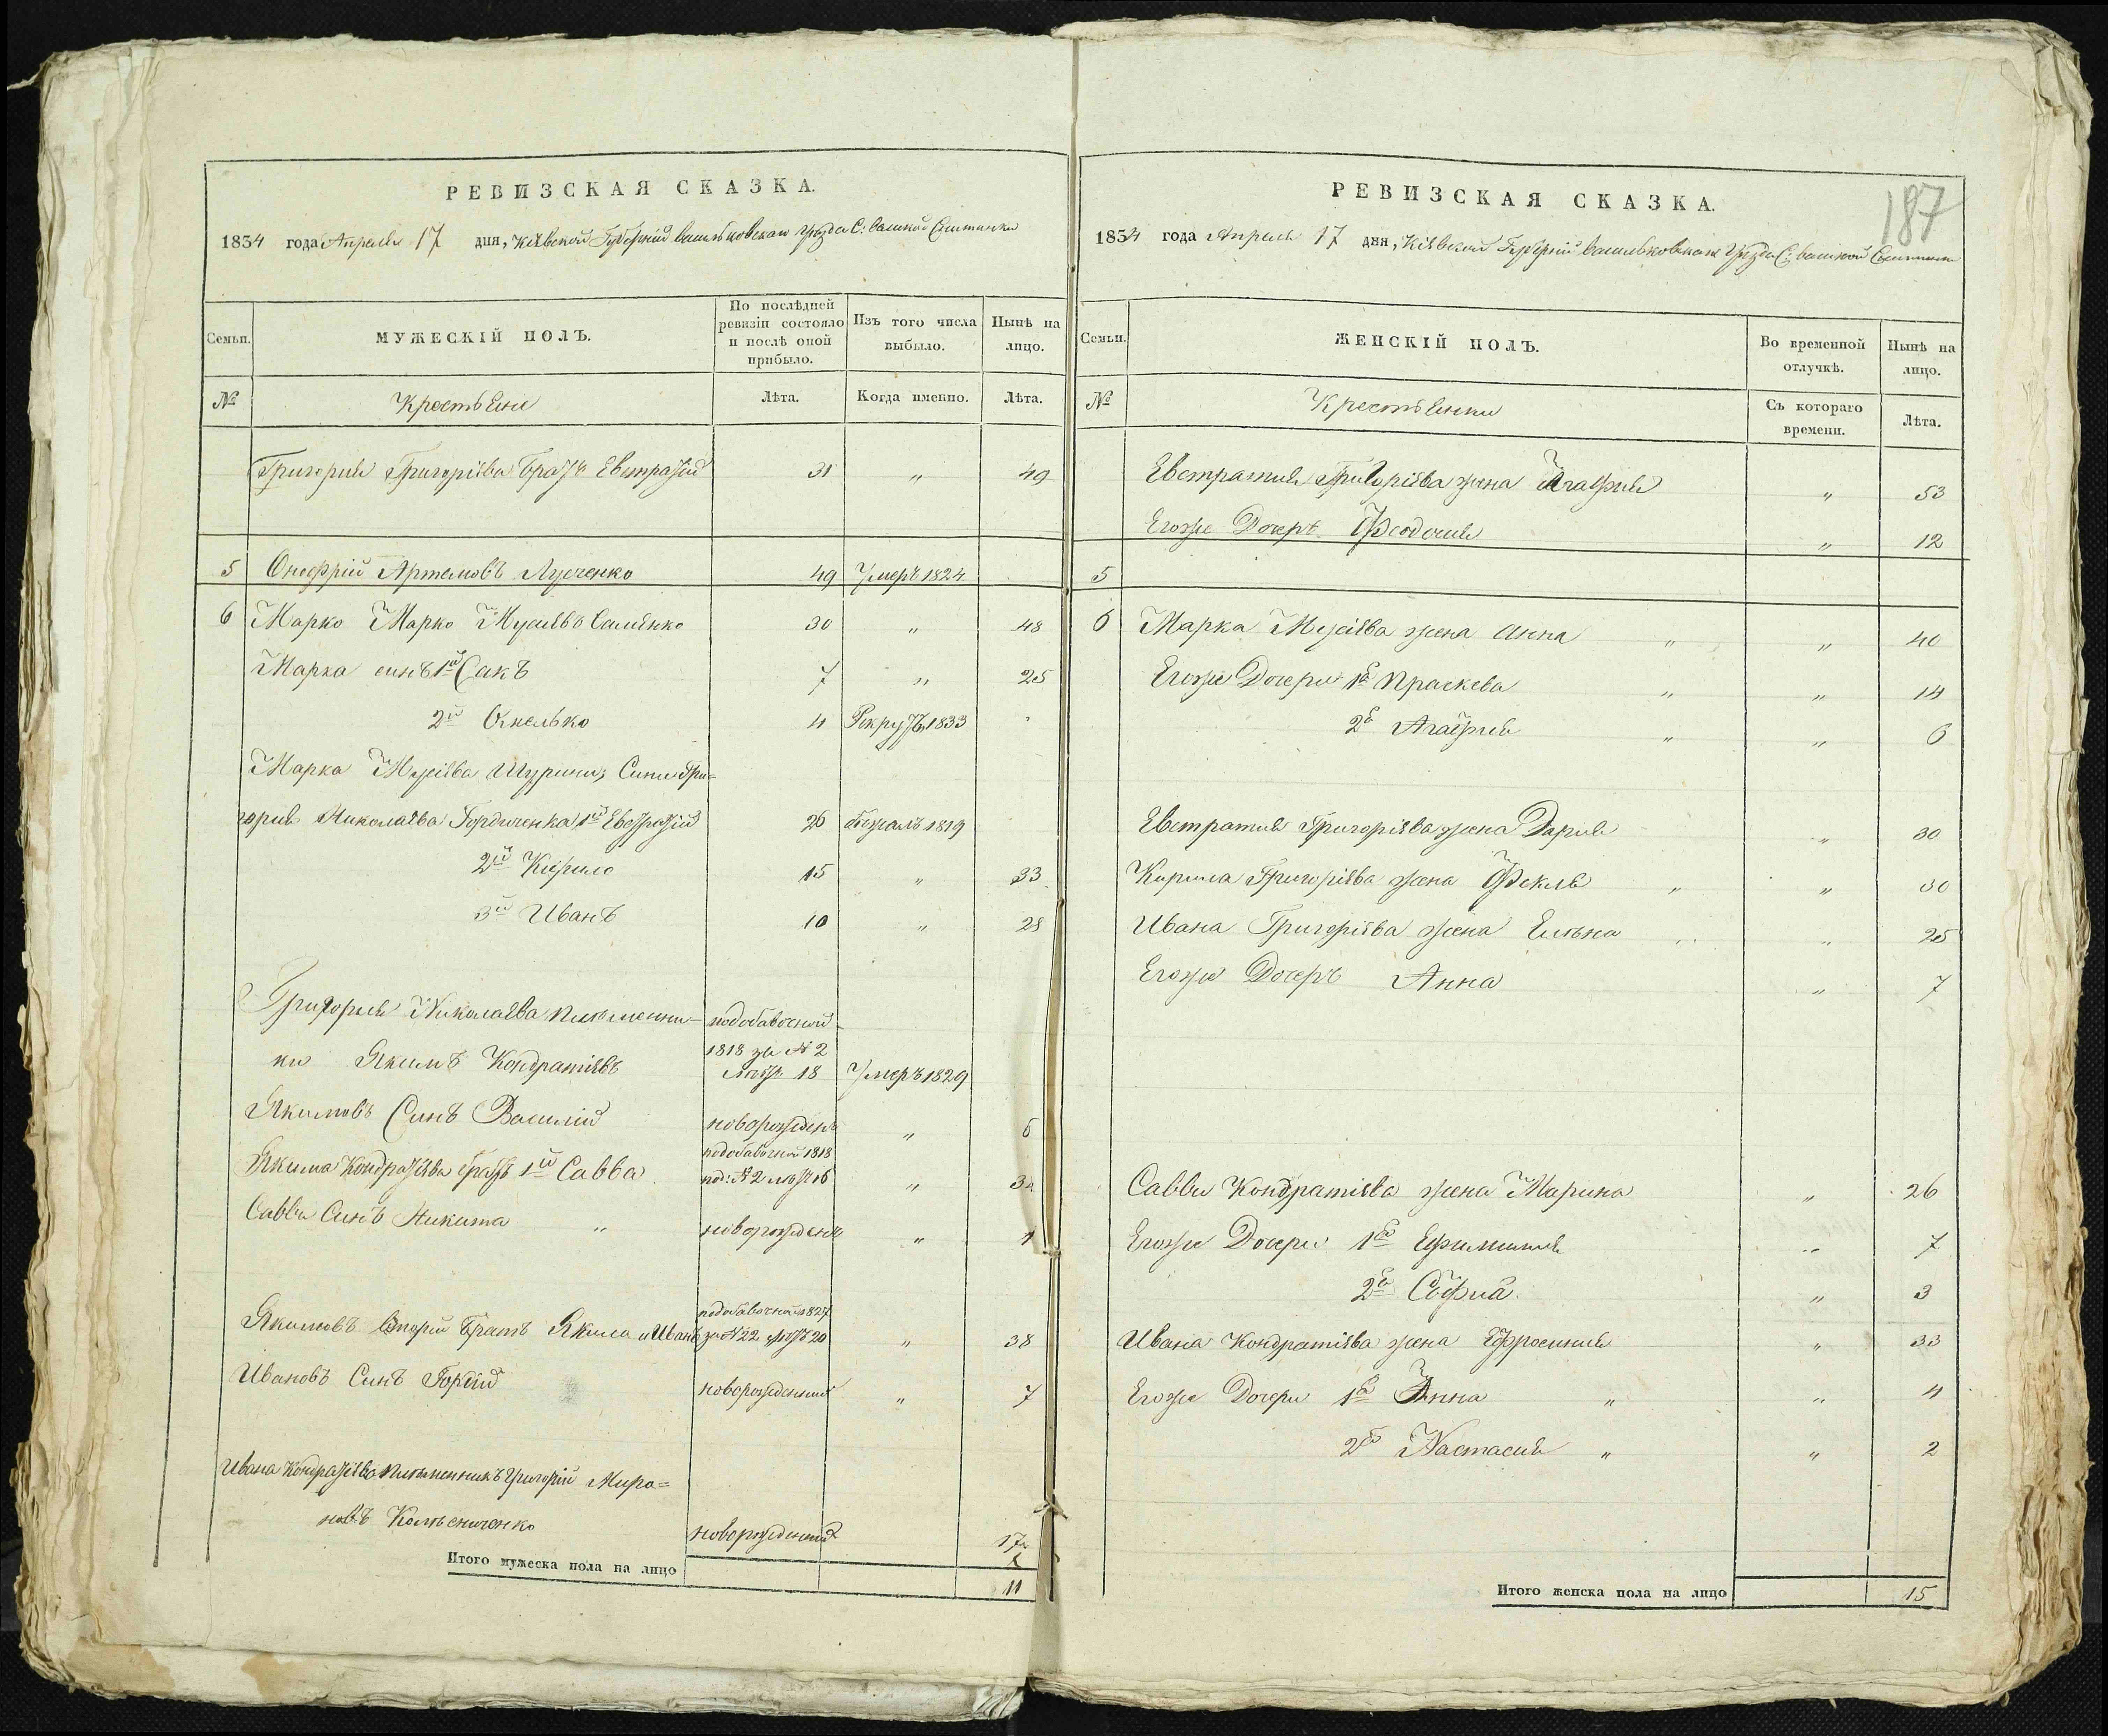 РЕВИЗСКАЯ СКАЗКА.
1834 года Апреля 17 дня, Кіевской Губерніи Васильковскаго Уезда С:
Семьи. МУЖЕСКІЙ ПОЛЪ. По послѣдней ревизіи состояло и послѣ оной прибыло. Изъ того числа выбыло. Нынѣ на лицо.
№ Крестьяне Лѣта. Когда именно. Лѣта.
Григорія Григоріева братъ Евстратій 31 " 49
5 Онофрій Артемовъ Луценко 49 Умеръ 1824
6 Марко Марко Мусіевъ 30 " 48
Марка синъ 1й Сакъ 7 " 25
2й Омелько 4 Рекрутъ 1833
Марка Мусіева Шурини, Сини Гри=
горія Николаева Гордиченка 1й Евстратій 26 бежалъ 1819
2й Кирило 15 " 33
3й Иванъ 10 " 28
Григорія Николаева племянни- подобавочной
ки Якимъ Кондратіевъ 1818 за № 2 летъ 18 Умеръ 1829
Якимовъ Синъ Василій новорожденъ " 6
Якима Кондратіева братъ 1й Савва подобавочной 1818 под: № 2 летъ 16 " 34
Саввы Синъ Никита " новорожденъ " 1
Якимовъ Второй братъ Якима и Иванъ подобавочной 1827 за № 22 летъ 20 " 38
Ивановъ Синъ Гордій новорожденний " 7
Ивана Кондратіева племянникъ Григорій Миро=
новъ Колесниченко новорожденний 17
Итого мужеска пола на лицо 11
187
РЕВИЗСКАЯ СКАЗКА.
1834 года Апреля 17 дня, Кіевской Губерніи Васильковскаго Уезда С:
Семьи. ЖЕНСКІЙ ПОЛЪ. Во временной отлучкѣ. Нынѣ на лицо.
№ Крестьянки Съ котораго времени. Лѣта.
Евстратия Григоріева жена Агафия " 53
Егоже Дочеръ Феодосия " 12
5
6 Марка Мусіева жена Анна " " 40
Егоже Дочери 1я Праскева " " 14
2я Агафия " " 6
Евстратия Григоріева жена Дария " 30
Кирила Григоріева жена Фекля " " 30
Ивана Григоріева жена Елена " " 25
Егоже Дочеръ Анна " 7
Саввы Кондратіева жена Марина " 26
Егоже Дочери 1я Ефимия " 7
2я Софиа " 3
Ивана Кондратіева жена Ефросиния " 33
Егоже Дочери 1я Анна " " 4
2я Настасия " " 2
Итого женска пола на лицо 15